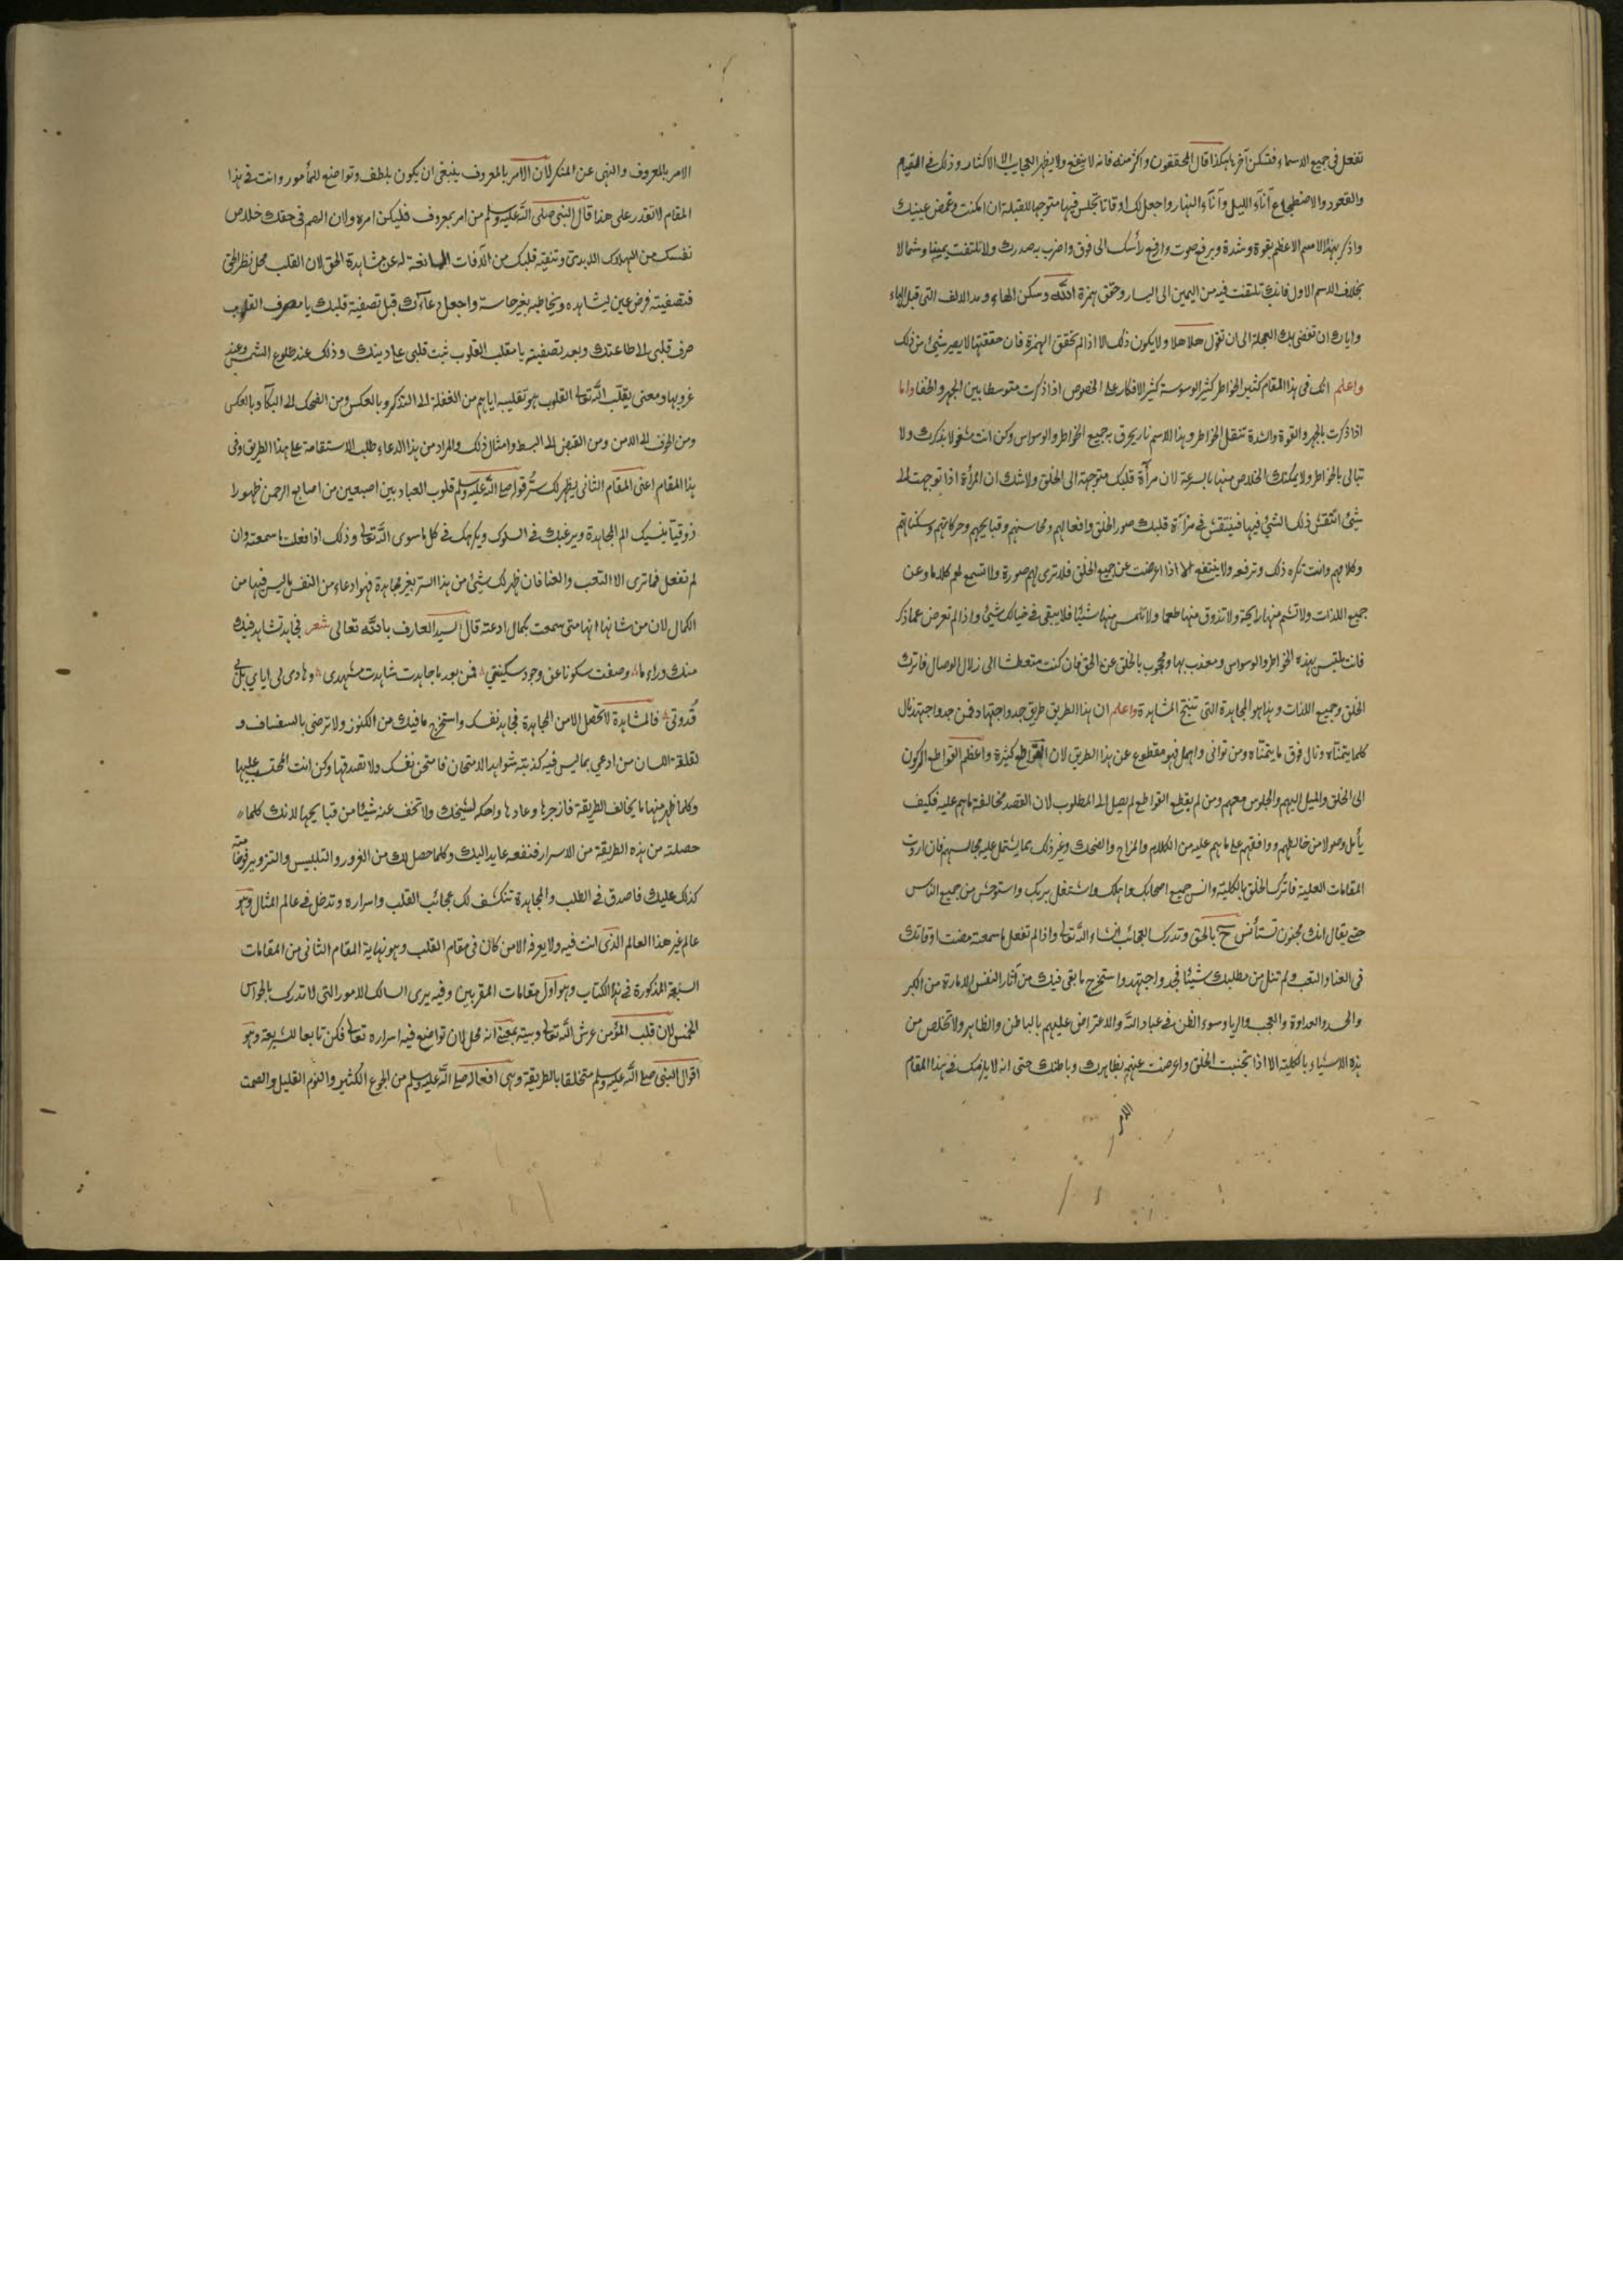 تفعل فى جميع الاسماء فتسكن آخرها هكذا قال المحققون واكثر منه فانه لا ينفع ولا يظهر العجايب الا الاكثار وذلك فى القيام
والقعود والاضطجاع آناء الليل وآناء النهار واجعل لك اوقاتا تجلس فيها متوجها للقبلة ان امكنت وغمض عينيك
واذكر بهذا الاسم الاعظم بقوة وشدة وبرفع صوت وارفع رأسك الى فوق واضرب به صدرك ولا تلتفت يمينا وشمالا
بخلاف الاسم الاول فانك تلتفت فيه من اليمين الى اليسار وحقق همزة الله وسكن الهاء ومد الالف التى قبل الهاء
واياك ان تفضى بك العجلة الى ان تقول هلا هلا ولا يكون ذلك الا اذا لم تحقق الهمزة فان حققتها لا يصير شيئ من ذلك
واعلم انك فى هذا المقام كثير الخواطر كثير الوسوسة كثير الافكار على الخصوص اذا ذكرت متوسطا بين الجهر والخفا واما
اذا ذكرت بالجهر والقوة والشدة تنقل الخواطر وهذا الاسم نار يحرق به جميع الخواطر والوسواس وكن انت مشغولا بذكرك ولا
تبالى بالخواطر ولا يمكنك الخلاص منها بالسرعة لان مرآة قلبك متوجهة الى الخلق ولا شك ان المرآة اذا توجهت الى
شيئ انتقش ذلك الشيئ فيها فينتقش فى مرآة قلبك صور الخلق وافعالهم ومحاسنهم وقبايحهم وحركاتهم وسكناتهم
وكلامهم وانت تكره ذلك وترفعه ولا ينتفع الا اذا اعرضت عن جميع الخلق فلا ترى لهم صورة ولا تسمع لهم كلاما وعن
جميع اللذات ولا تشم منها رايحة ولا تذوق منها طعما ولا تلمس منها شيئا فلا يبقى فى خيالك شيئ واذا لم تعرض عما ذكر
فانت ملتبس بهذه الخواطر والوسواس ومعذب بها ومحجوب بالخلق عن الحق فان كنت متعطشا الى زلال الوصال فاترك
الخلق وجميع اللذات وهذا هو المجاهدة التى تنتج المشاهدة واعلم ان هذا الطريق طريق جد واجتهاد فمن جد واجتهد نال
كلما يتمناه ونال فوق ما يتمناه ومن توانى واهمل فهو مقطوع عن هذا الطريق لان القواطع كثيرة واعظم القواطع الركون
الى الخلق والميل اليهم والجلوس معهم ومن لم يقطع القواطع لم يصل الى المطلوب لان القصد مخالفة ما هم عليه فكيف
يأمل وصولا من خالطهم ووافقهم على ما هم عليه من الكلام والمزاح والضحك وغير ذلك بما يشتمل عليه مجالسهم فان اردت
المقامات العلية فاترك الخلق بالكلية وانس جميع اصحابك واهلك واشتغل بربك واستوحش من جميع الناس
حتى يقال انك مجنون تستأنس ح بالحق وتدرك العجائب انشاء الله تعالى واذا لم تفعل ما سمعته مضت اوقاتك
فى العنا والتعب ولم تنل من مطلبك شيئا فجد واجتهد واستخرج ما بقى فيك من آثار النفس الامارة من الكبر
والحسد والعداوة والعجب والريا وسوء الظن فى عباد الله والاعتراض عليهم بالباطن والظاهر ولا تخلص من
هذه الاشياء بالكلية الا اذا تجنبت الخلق واعرضت عنهم بظاهرك وباطنك حتى انه لا يلزمك فى هذا المقام
الامر
الامر بالمعروف والنهى عن المنكر لان الامر بالمعروف ينبغى ان يكون بلطف وتواضع للمأمور وانت فى هذا
المقام لا تقدر على هذا قال النبى صلى الله عليه وسلم من امر بمعروف فليكن امره ولان الاهم فى حقك خلاص
نفسك من الهلاك الابدى وتنقية قلبك من الآفات المانعة له عن مشاهدة الحق لان القلب محل نظر الحق
فتصفيته فرض عين ليشاهده ويخاطبه بغير حاسة واجعل دعاءك قبل تصفية قلبك يا مصرف القلوب
صرف قلبى الى طاعتك وبعد تصفيته يا مقلب القلوب ثبت قلبى على دينك وذلك عند طلوع الشمس وعند
غروبها ومعنى يقلب الله تعالى القلوب هو تقليبه اياهم من الغفلة الى التذكر وبالعكس ومن الضحك الى البكآء وبالعكس
ومن الخوف الى الامن ومن القبض الى البسط وامثال ذلك والمراد من هذا الدعاء طلب الاستقامة على هذا الطريق وفى
هذا المقام اعنى المقام الثانى ليظهر لك ستر قوله صلى الله عليه وسلم قلوب العباد بين اصبعين من اصابع الرحمن ظهورا
ذوقيا ينسيك الم المجاهدة ويرغبك فى السلوك ويكرهك فى كل ما سوى الله تعالى وذلك اذا فعلت ما سمعته وان
لم تفعل فما ترى الا التعب والعنا فان ظهر لك شيئ من هذا الستر بغير مجاهدة فهو ادعاء من النفس ما ليس فيها من
الكمال لان من شانها انها متى سمعت بكمال ادعته قال السيد العارف بالله تعالى شعر فجاهد تشاهد فيك
منك وراء ما وصفت سكونا عن وجود سكينتي فمن بعد ما جاهدت شاهدت مشهدى وهادى لى اياي بل بى
قدوتى فالمشاهدة لا تحصل الا من المجاهدة فجاهد نفسك واستخرج ما فيك من الكنوز ولا ترضى بالسفساف و
لقلقة اللسان من ادعى بما ليس فيه كذبته شواهد الامتحان فامتحن نفسك ولا تصدقها وكن انت المحتسب عليها
وكلما ظهر منها ما يخالف الطريقة فازجرها وعادها واحكه لشيخك ولا تخف عنه شيئا من قبايحها لانك كلما
حصلته من هذه الطريقة من الاسرار فنفعه عايد اليك وكلما حصل لك من الغرور والتلبيس والتزوير فوضا منه
كذلك عليك فاصدق فى الطلب والمجاهدة تنكشف لك عجائب القلب واسراره وتدخل فى عالم المثال وهو
عالم غير هذا العالم الذى انت فيه ولا يعرفه الا من كان فى مقام القلب وهو نهاية المقام الثانى من المقامات
السبعة المذكورة فى هذا الكتاب وهو اول مقامات المقربين وفيه يرى السالك الامور التى لا تدرك بالحواس
الخمس لان قلب المؤمن عرش الله تعالى وبيته بمعنى انه محل لان تواضع فيه اسراره تعالى فكن تابعا للشريعة وهو
اقوال النبى صلى الله عليه وسلم متخلقا بالطريقة وهى افعاله صلى الله عليه وسلم من الجوع الكثير والنوم القليل والصمت